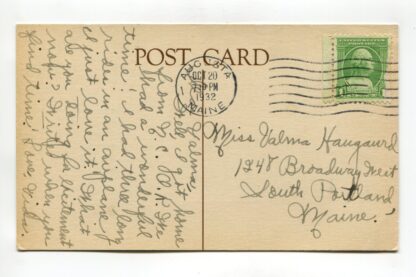 POST CARD
AUGUSTA
OCT 20
PM
1932
MAINE
Well I got home
from N.Y.C.
I had a wonderful
time. I had three long
rides in an airplane &
I just love it. What
are you doing for excitement
now? Write when you
find time. Love,
Miss Valma Haugaurd
1248 Broadway West
South Portland
Maine.